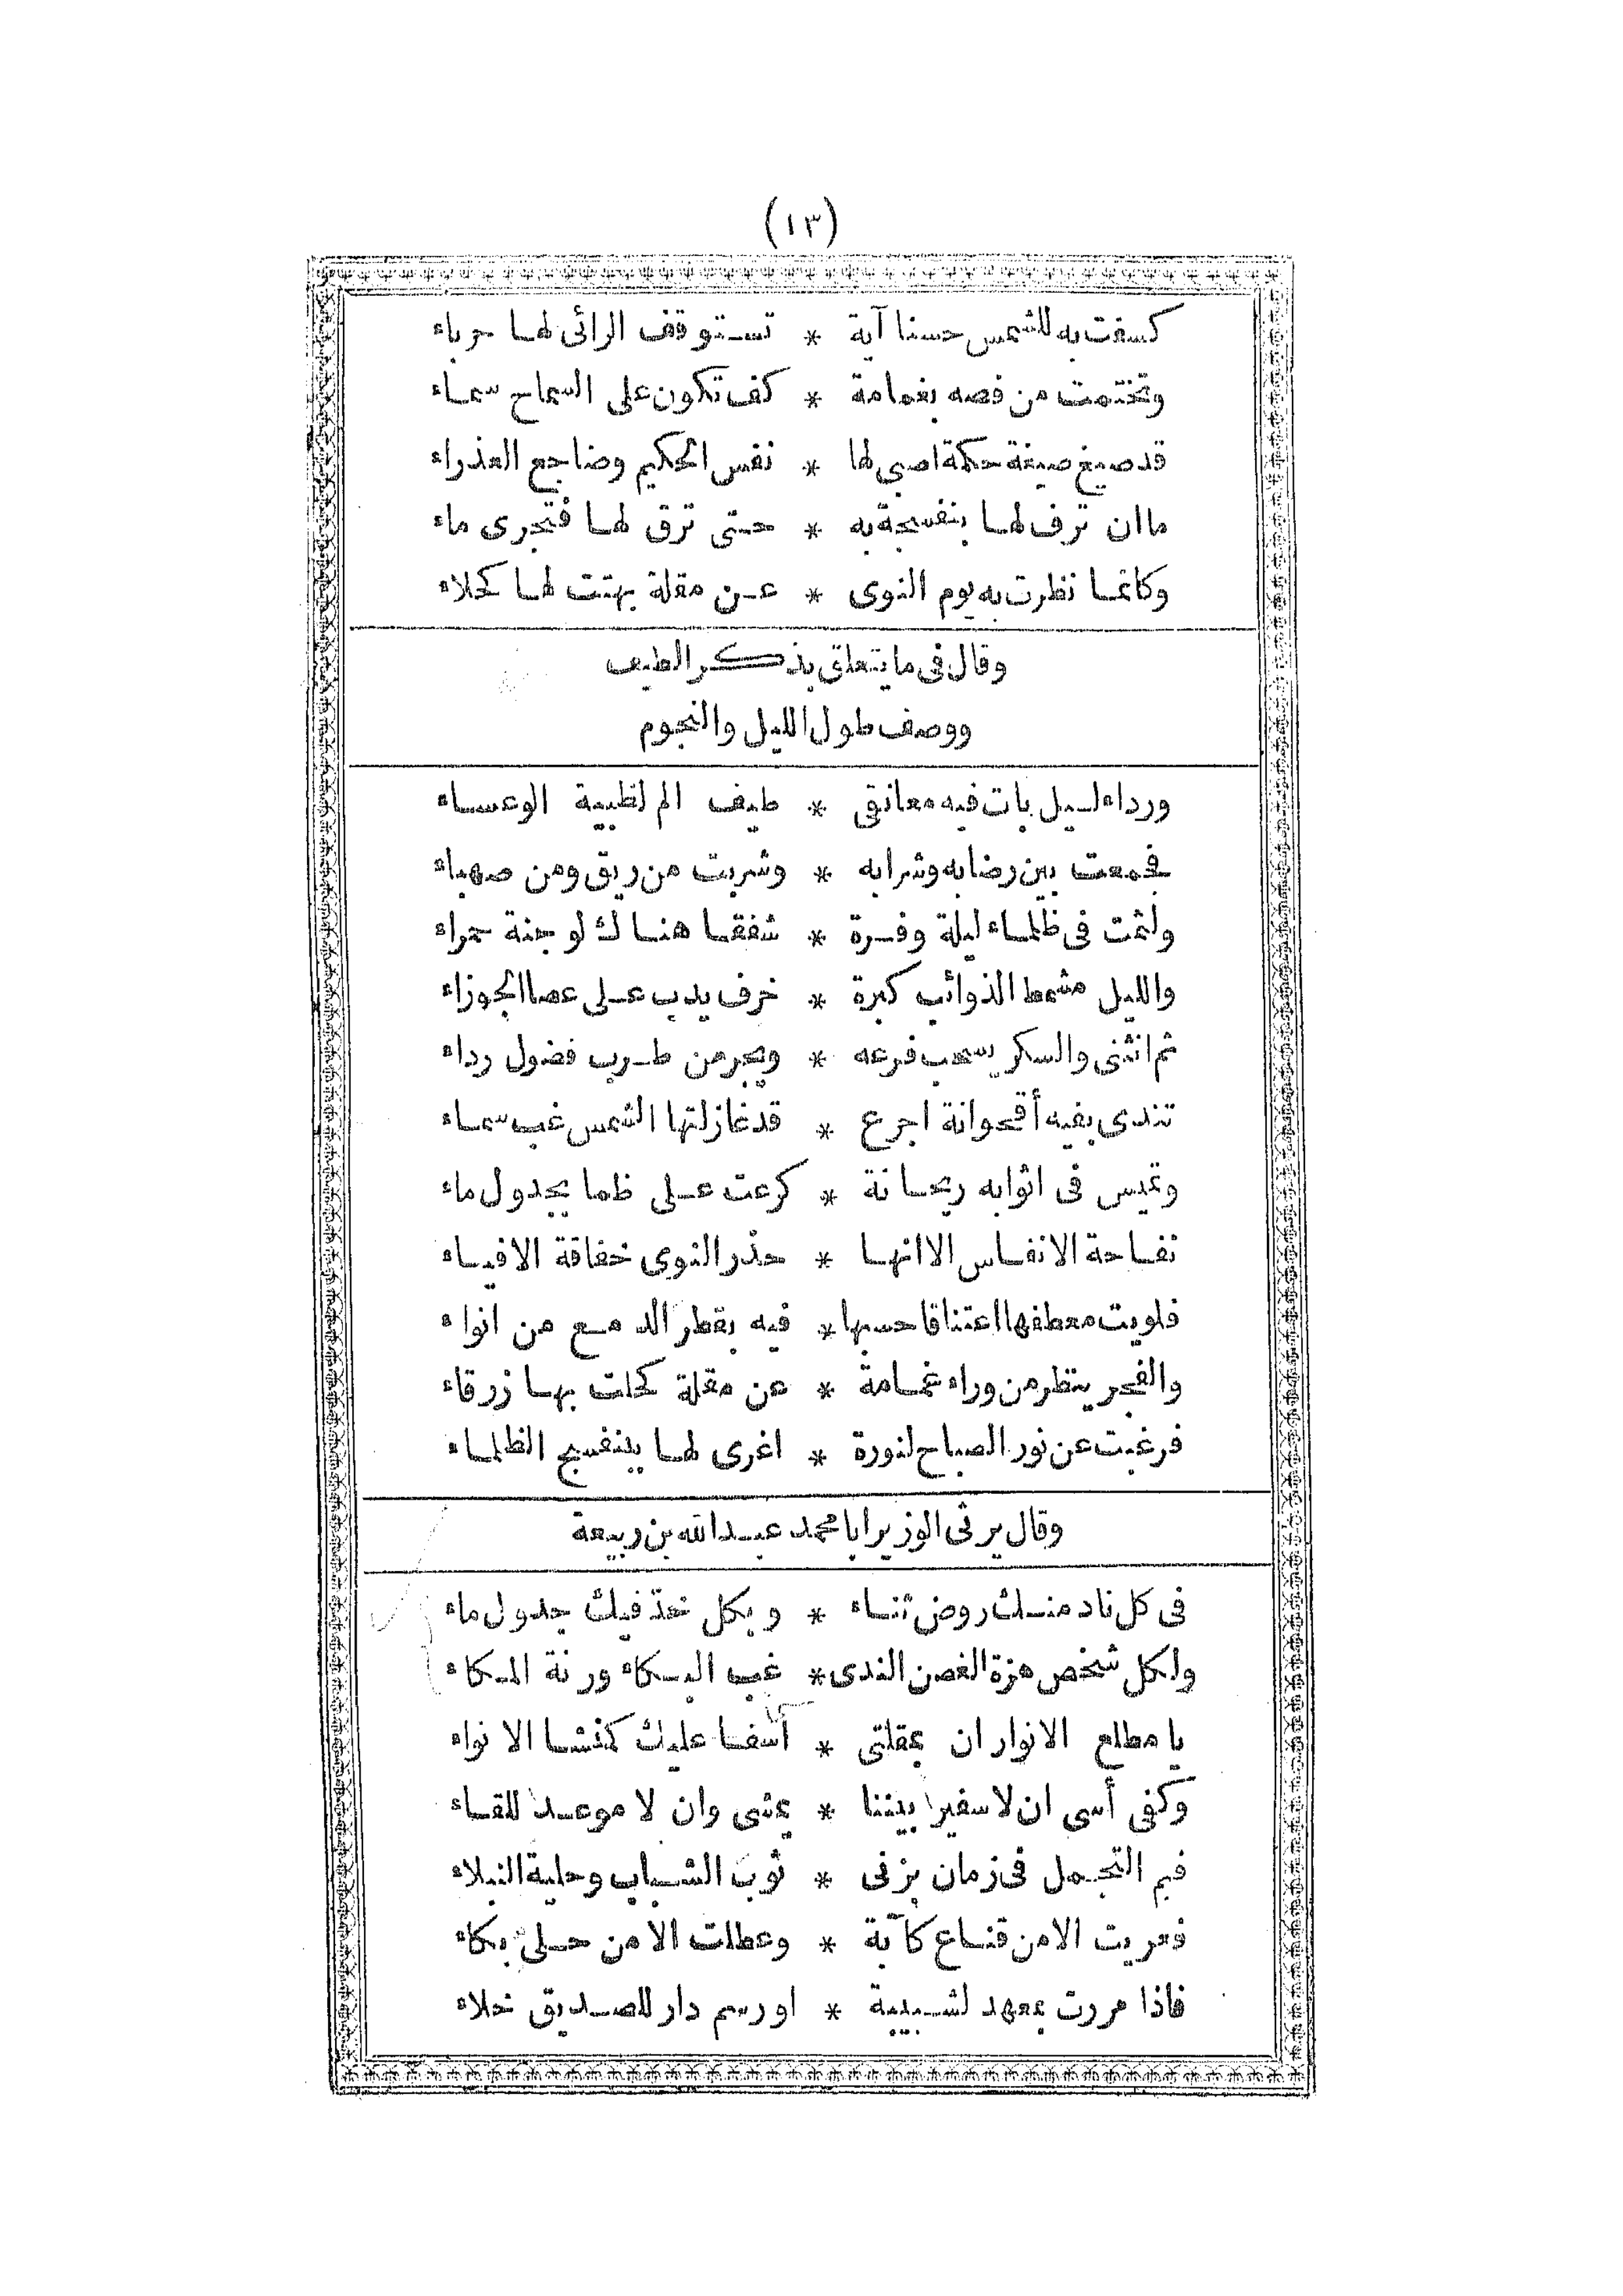 (١٣)
كسفت به للشمس حسنا آية * تستوقف الرائى لها حرباء
وتختمت من فصه بغمامة * كف تكون على السماح سماء
قد صيغ صيغة حكمة اصبى لها * نفس الحكيم وضاجع العذراء
ما ان ترف لها بنفسجة به * حتى ترق لها فتجرى ماء
وكانما نظرت به يوم النوى * عن مقلة بهتت لها كحلاء
وقال فى ما يتعلق بذكر الطيف
ووصف طول الليل والنجوم
ورداء ليل بات فيه معانقى * طيف الم لظبية الوعساء
فجمعت بين رضابه وشرابه * وشربت من ريق ومن صهباء
ولثمت فى ظلماء ليلة وفرة * شفقا هناك لوجنة حمراء
والليل مشمط الذوائب كبرة * خرف يدب على عصا الجوزاء
ثم انثنى والسكر يسحب فرعه * ويجر من طرب فضول رداء
تندى بفيه أقحوانة اجرع * قد غازلتها الشمس غب سماء
وتميس فى اثوابه ريحانة * كرعت على ظما بجدول ماء
نفاحة الانفاس الا انها * حذر النوى خفاقة الافياء
فلويت معطفها اعتناقا حسبها * فيه بقطر الدمع من انواء
والفجر ينظر من وراء غمامة * عن مقلة كحلت بها زرقاء
فرغبت عن نور الصباح لنورة * اغرى لها ببنفسج الظلماء
وقال يرثى الوزير ابا محمد عبد الله بن ربيعة
فى كل ناد منك روض ثناء * وبكل خد فيك جدول ماء
ولكل شخص هزة الغصن الندى * غب البكاء ورنة المكاء
يا مطلع الانوار ان بمقلتى * أسفا عليك كمنشا الانواء
وكفى أسى ان لا سفير بيننا * يمشى وان لا موعد للقاء
فيم التجمل فى زمان بزنى * ثوب الشباب وحلية النبلاء
فعريت الا من قناع كآبة * وعطلت الا من حلى بكاء
فاذا مررت بمعهد لشبيبة * او رسم دار للصديق خلاء